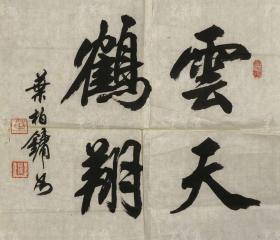 雲天
鶴翔
葉柏鏞书